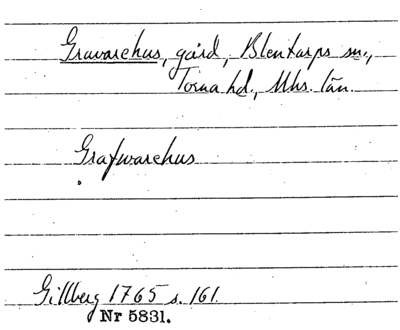 Gravarehus, gård, Blentarps sn.,
Torna hd., Mhs. län.
Grafwarehus
Gillberg 1765 s. 161.
Nr 5831.